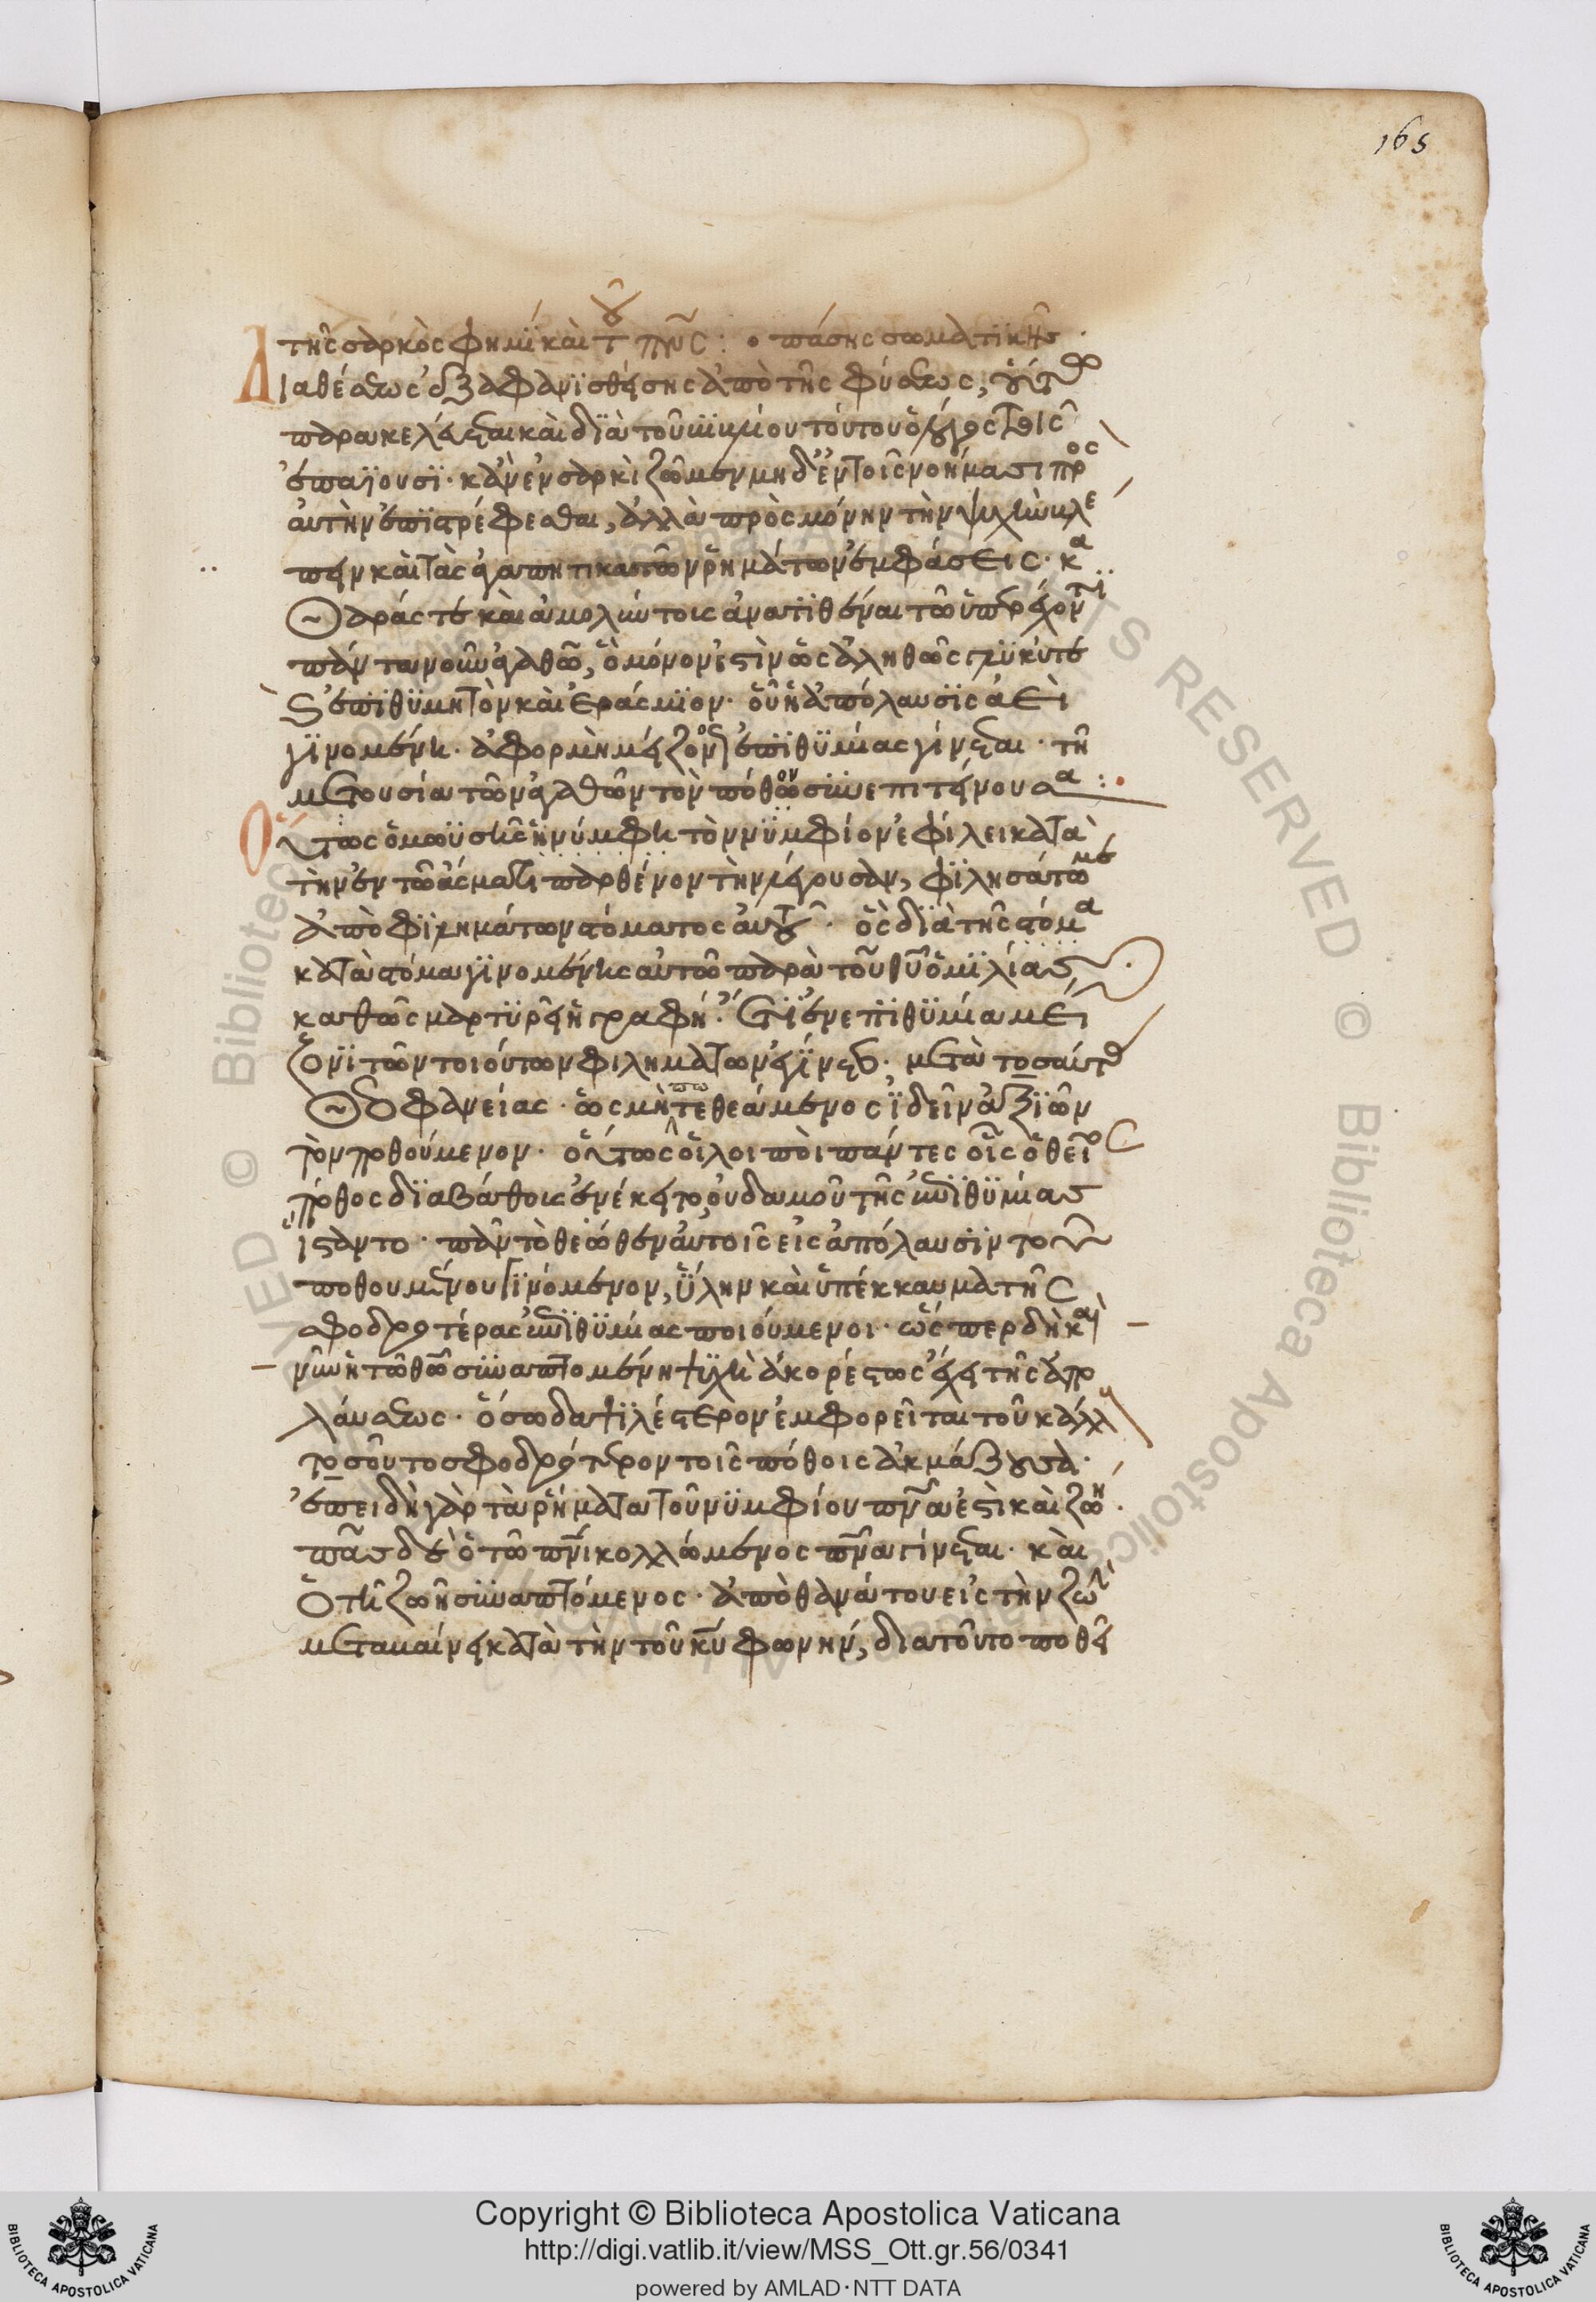 165
τῆς σαρκὸς φημὶ καὶ τοῦ πνς : ο πάσης σωματικῆς
Διαθέσεως ἐξαφανισθείσης ἀπὸ τῆς φύσεως,
παρακελεύεται καὶ διὰ τοῦ τούτου ὁ λόγος τοῖς
ἐπαΐουσι · κἂν ἐν σαρκὶ ζῶμεν μηδ' ἐν τοῖς νοήμασι πρὸς
αὐτὴν ἐπιστρέφεσθαι, ἀλλὰ πρὸς μόνην τὴν ψυχὴν βλέ
πειν καὶ τὰς ἀγαπητικὰς τῶν ῥημάτων ἐμφάσεις · κα
θαράς τε καὶ ἀμολύντοις ἀνατιθέναι τῶ ὑπερέχοντι
πάντα νοῦν ἀγαθῶ, ὃ μόνον ἐστὶν ὡς ἀληθῶς γλυκύ τε
ς ἐπιθυμητὸν καὶ ἐράσμιον · οὗ ἡ ἀπόλαυσις ἀεὶ
γινομένη · ἀφορμὴ μείζονος ἐπιθυμίας γίνεται · τῇ
μετουσία τῶν ἀγαθῶν τὸν πόθον συνεπιτείνουσα :
Οὕτως ὁ μωϋσῆς ἡ νύμφη τὸν νυμφίον ἐφίλει κατὰ
τὴν ἐν τῶ ἄσματι παρθένον τὴν λέγουσαν, φιλησάτω με
ἀπὸ φιλημάτων στόματος αὐτοῦ · ὃς διὰ τῆς στόμα
κατὰ στόμα γινομένης αὐτῶ παρὰ τοῦ θυ ὁμιλίας ·
καθὼς μαρτυρεῖ ἡ γραφή · ἐν ἐπιθυμία μεί
ζονι τῶν τοιούτων φιλημάτων ἐγίνετο · μετὰ τοσαύτας
θεοφανείας · ὡς μήπω τεθεάμενος ἰδεῖν ἀξιῶν
τὸν ποθούμενον · οὕτως οἱ λοιποὶ πάντες οἷς ὁ θεῖος
πόθος διὰ βάθους ἐνέκειτο, οὐδαμοῦ τῆς ἐπιθυμίας
ἵσταντο · πᾶν τὸ θεόθεν αὐτοῖς εἰς ἀπόλαυσιν τοῦ
ποθουμένου γινόμενον, ὕλην καὶ ὑπέκκαυμα τῆς
σφοδροτέρας ἐπιθυμίας ποιούμενοι · ὥσπερ δὴ καὶ
νῦν ἡ τῶ θῶ συναπτομένη ψυχὴ ἀκορέστως ἔχει τῆς ἀπο
λαύσεως · ὅσω δαψιλέστερον ἐμφορεῖται τοῦ κάλλους
τοσοῦτο σφοδρότερον τοῖς πόθοις ἀκμάζουσα ·
ἐπειδὴ γὰρ τὰ ῥήματα τοῦ νυμφίου πνα ἐστὶ καὶ ζωή ·
πᾶς δὲ ὁ τῶ πνι κολλώμενος πνα γίνεται · καὶ
ὁ τῇ ζωῇ συναπτόμενος · ἀπὸ θανάτου εἰς τὴν ζωὴν
μεταβαίνει κατὰ τὴν τοῦ κυ φωνήν, διὰ τοῦτο ποθεῖ
Copyright © Biblioteca Apostolica Vaticana
http://digi.vatlib.it/view/MSS_Ott.gr.56/0341
powered by AMLAD·NTT DATA
BIBLIOTECA APOSTOLICA VATICANA
BIBLIOTECA APOSTOLICA VATICANA